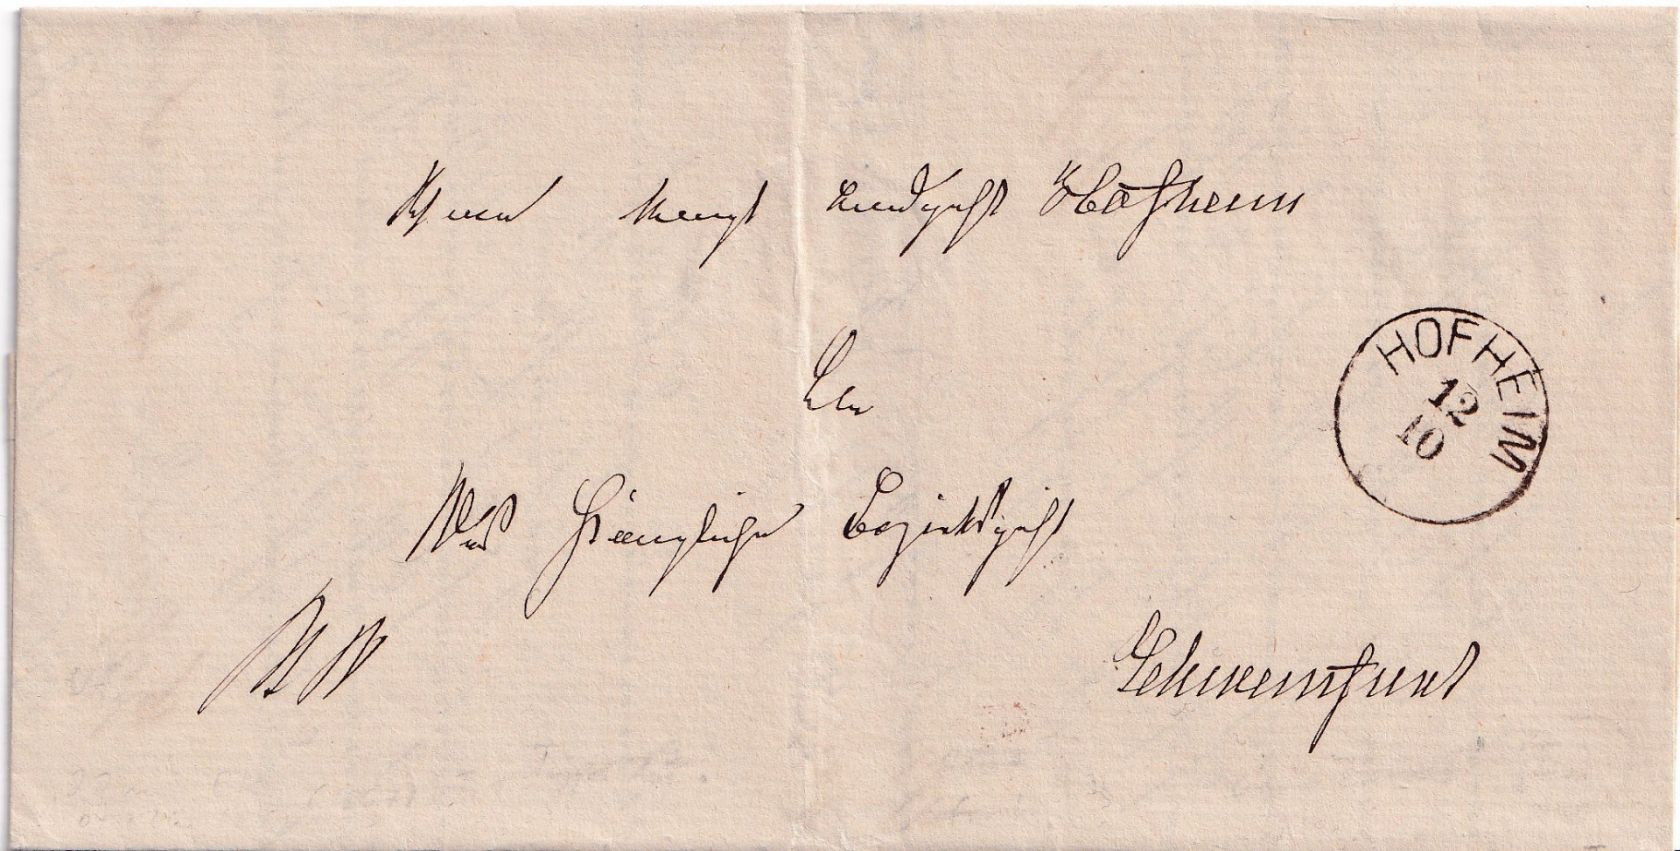 Vom königl Landgericht Hofheim
An
Das Königliche Bezirksgericht
HOFHEIM
12
10
Schweinfurt